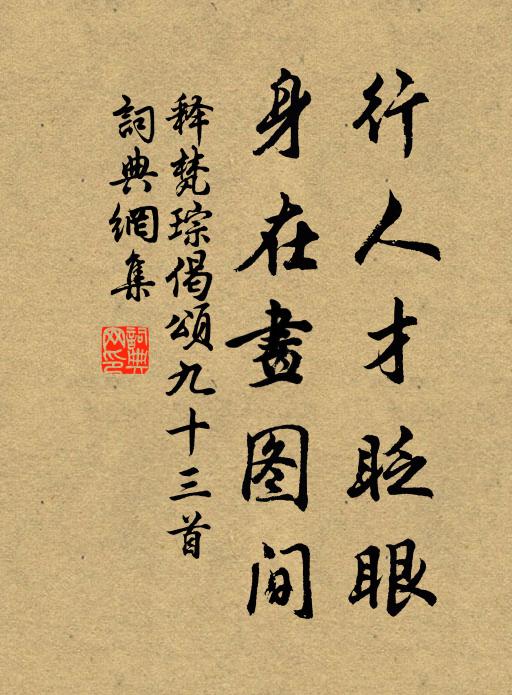 行人才眨眼
身在畫图间
释梵琮偈頌九十三首
詞典網集
詞典网印